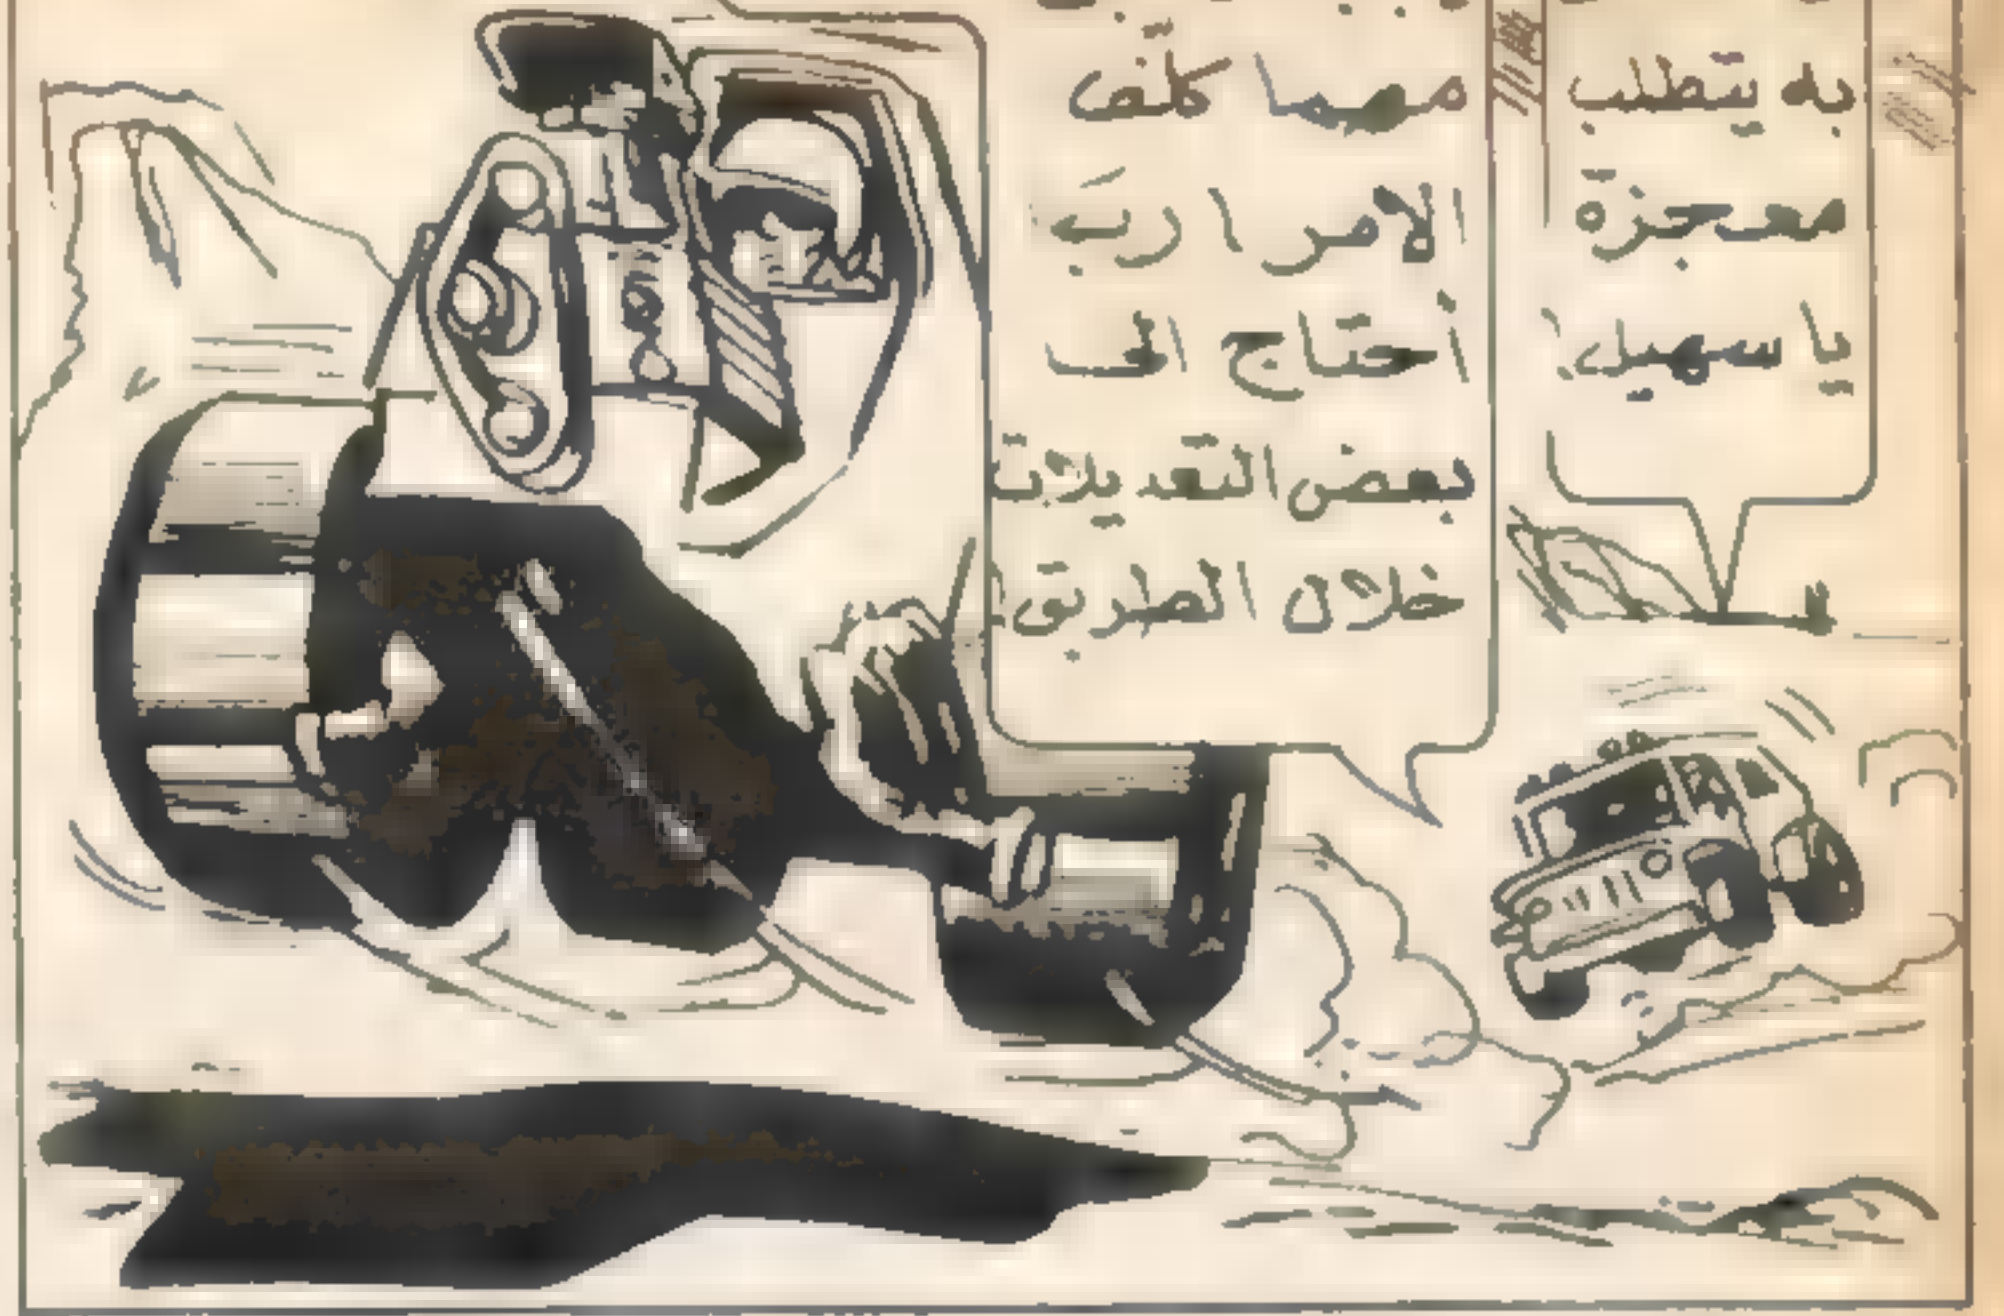 به يتطلب
معجزة
يا سهيل!
مهما كلّف
الامر! ربَ
أحتاج الى
بعض التعديلات
خلال الطريق!